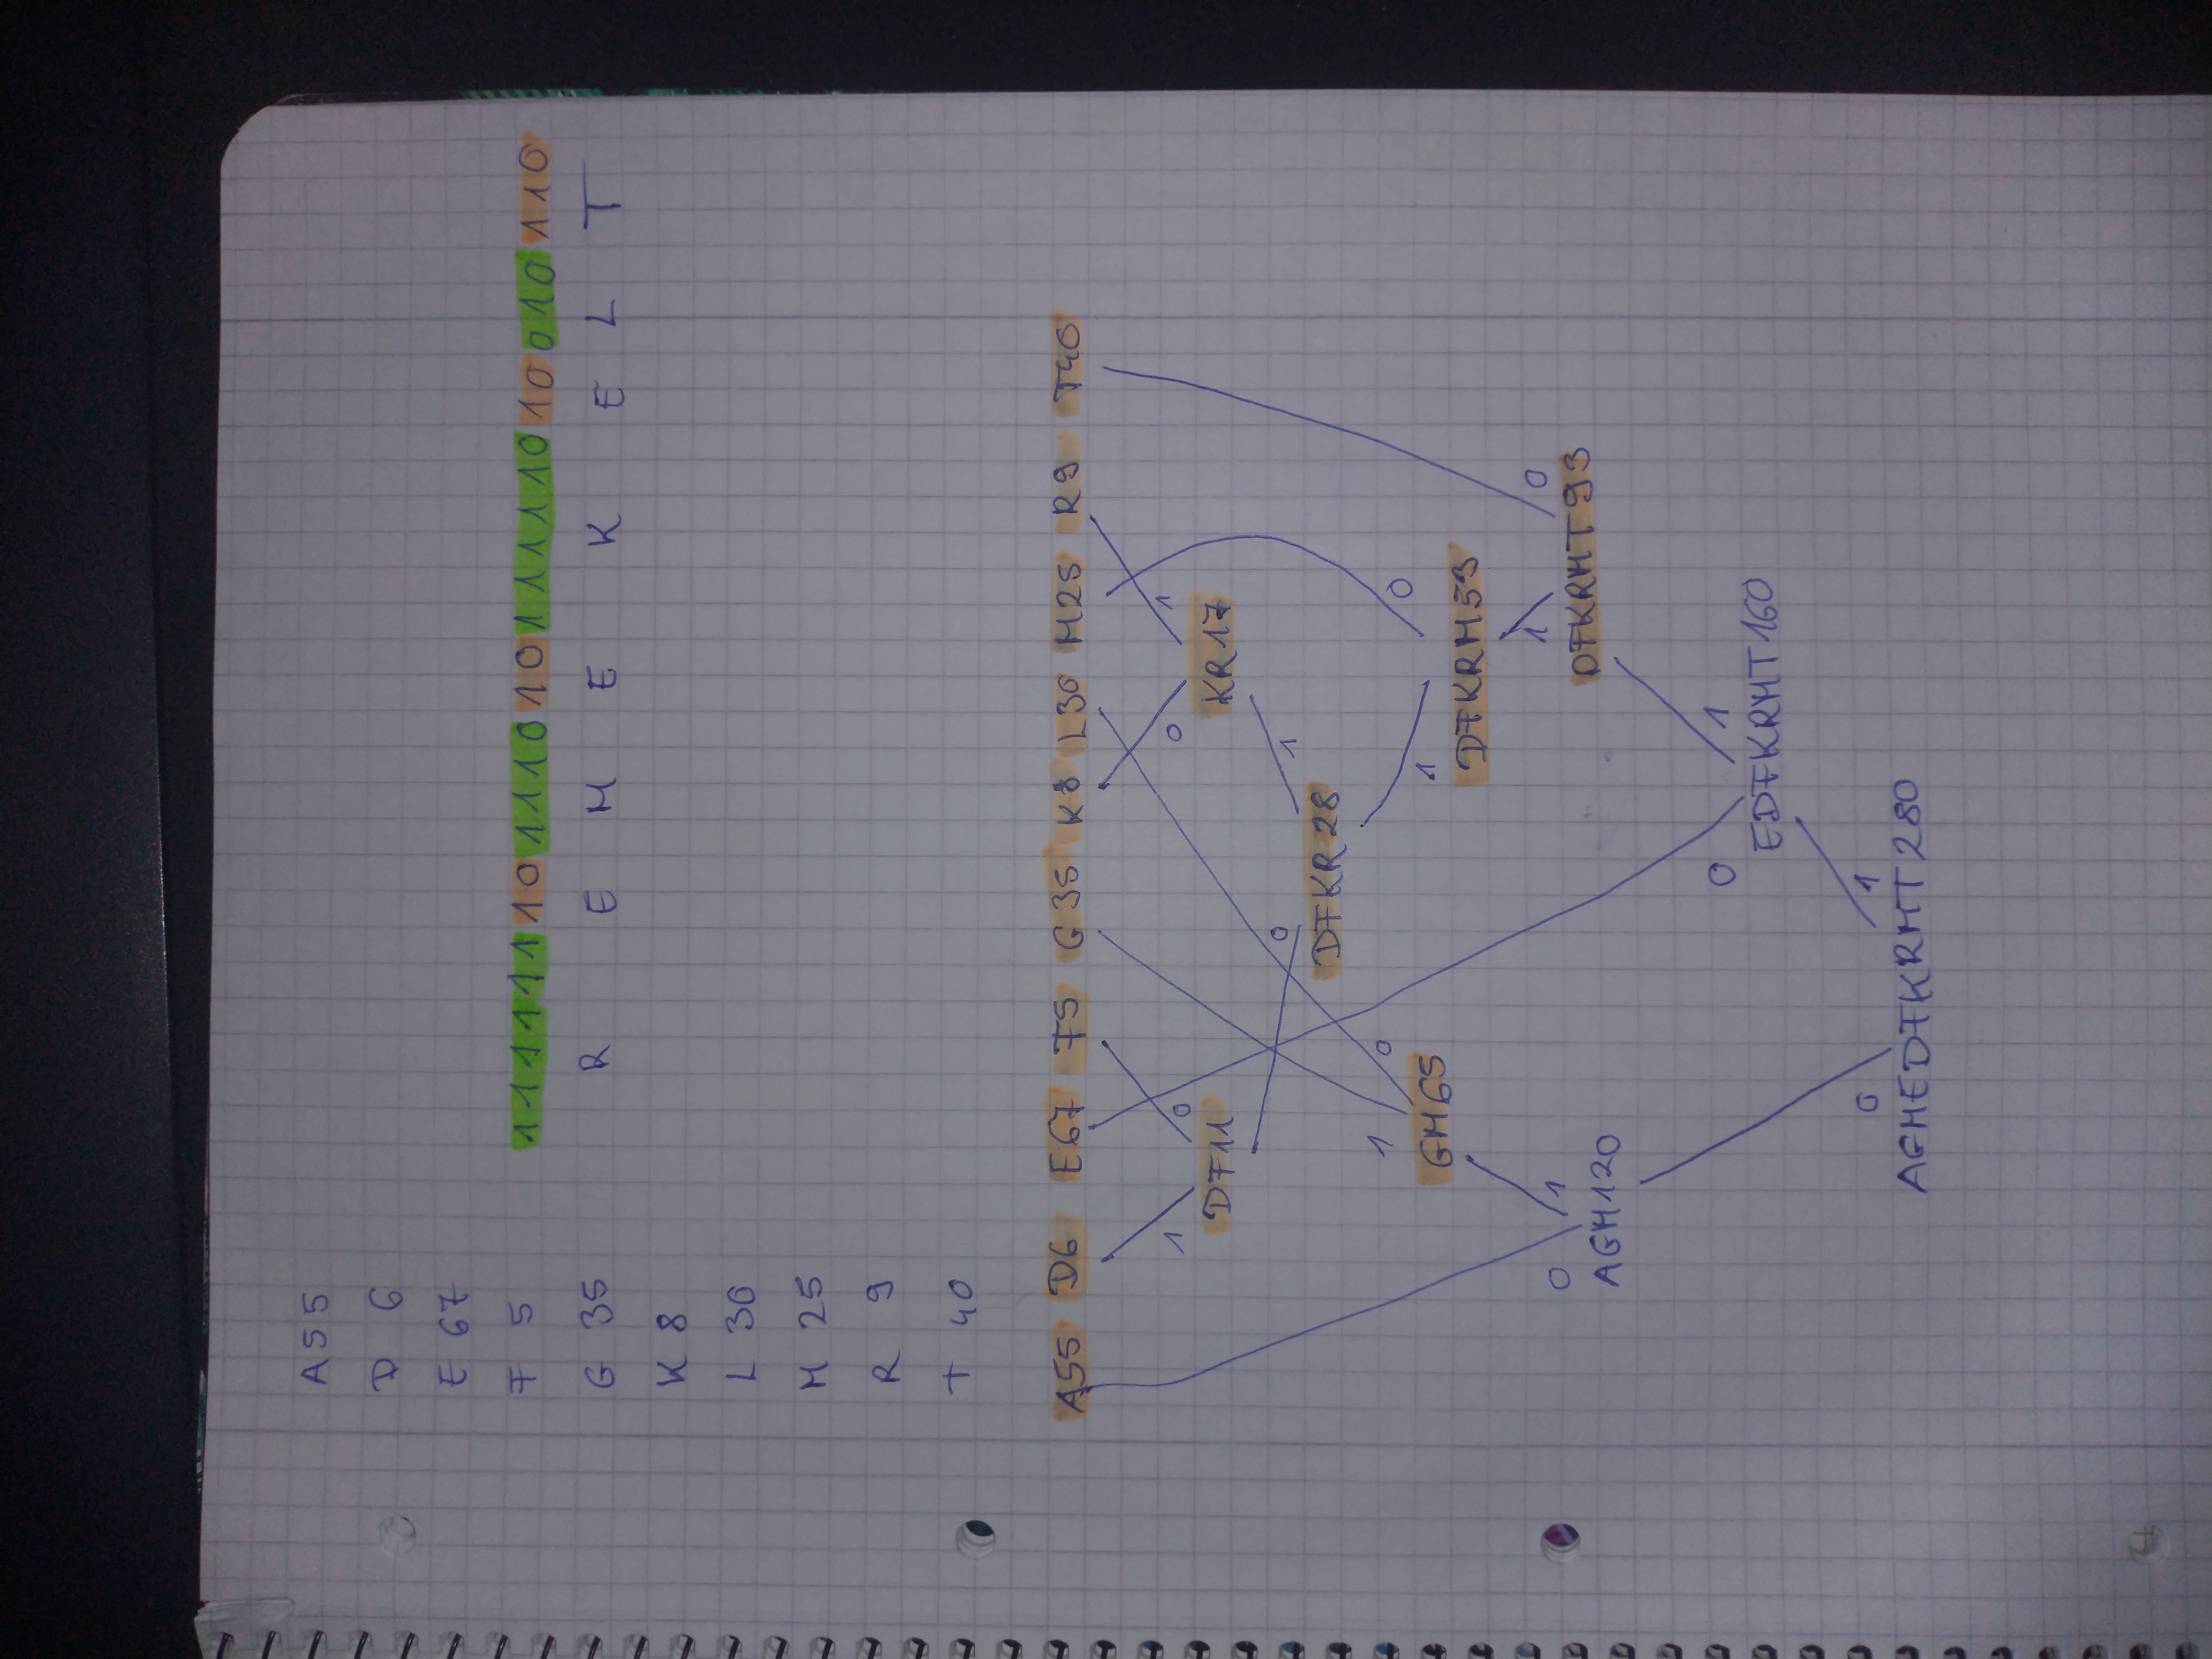 A 55
D 6
E 67
F 5
G 35
K 8
L 30
M 25
R 9
T 40
111111 10 1110 10 111110 10 010 110
R E M E K E L T
A55 D6 E67 F5 G35 K8 L30 M25 R9 T40
1 0 0 1
DF11 KR17
0 1
DFKR28
1 0 1 0
GM65 DFKRM53
0 1 1 0
AGM120 DFKRMT93
0 1
EDFKRMT160
0 1
AGMEDFKRMT280